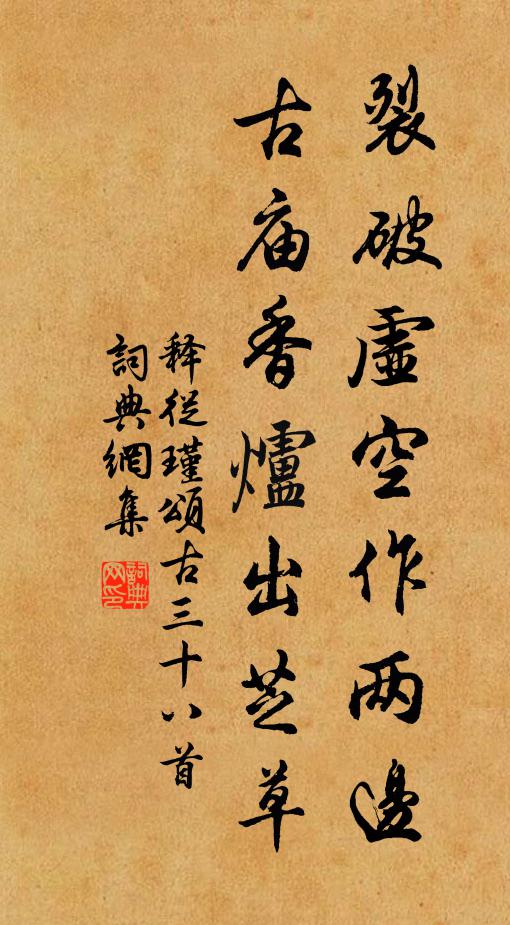 裂破虛空作两邊
古庙香爐出芝草
释從瑾頌古三十八首
詞典網集
詞典网印